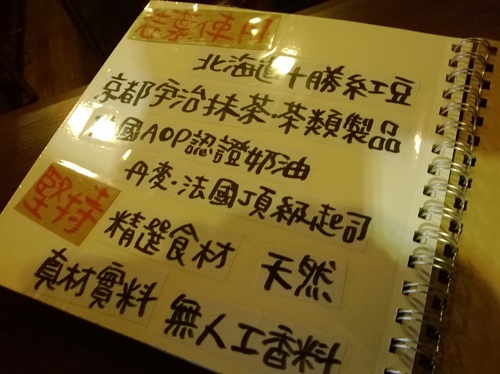 老葉使用
北海道十勝紅豆
京都宇治抹茶·茶類製品
國AOP認證奶油
丹麥·法國頂級起司
堅持
精選食材 天然
真材實料 無人工香料